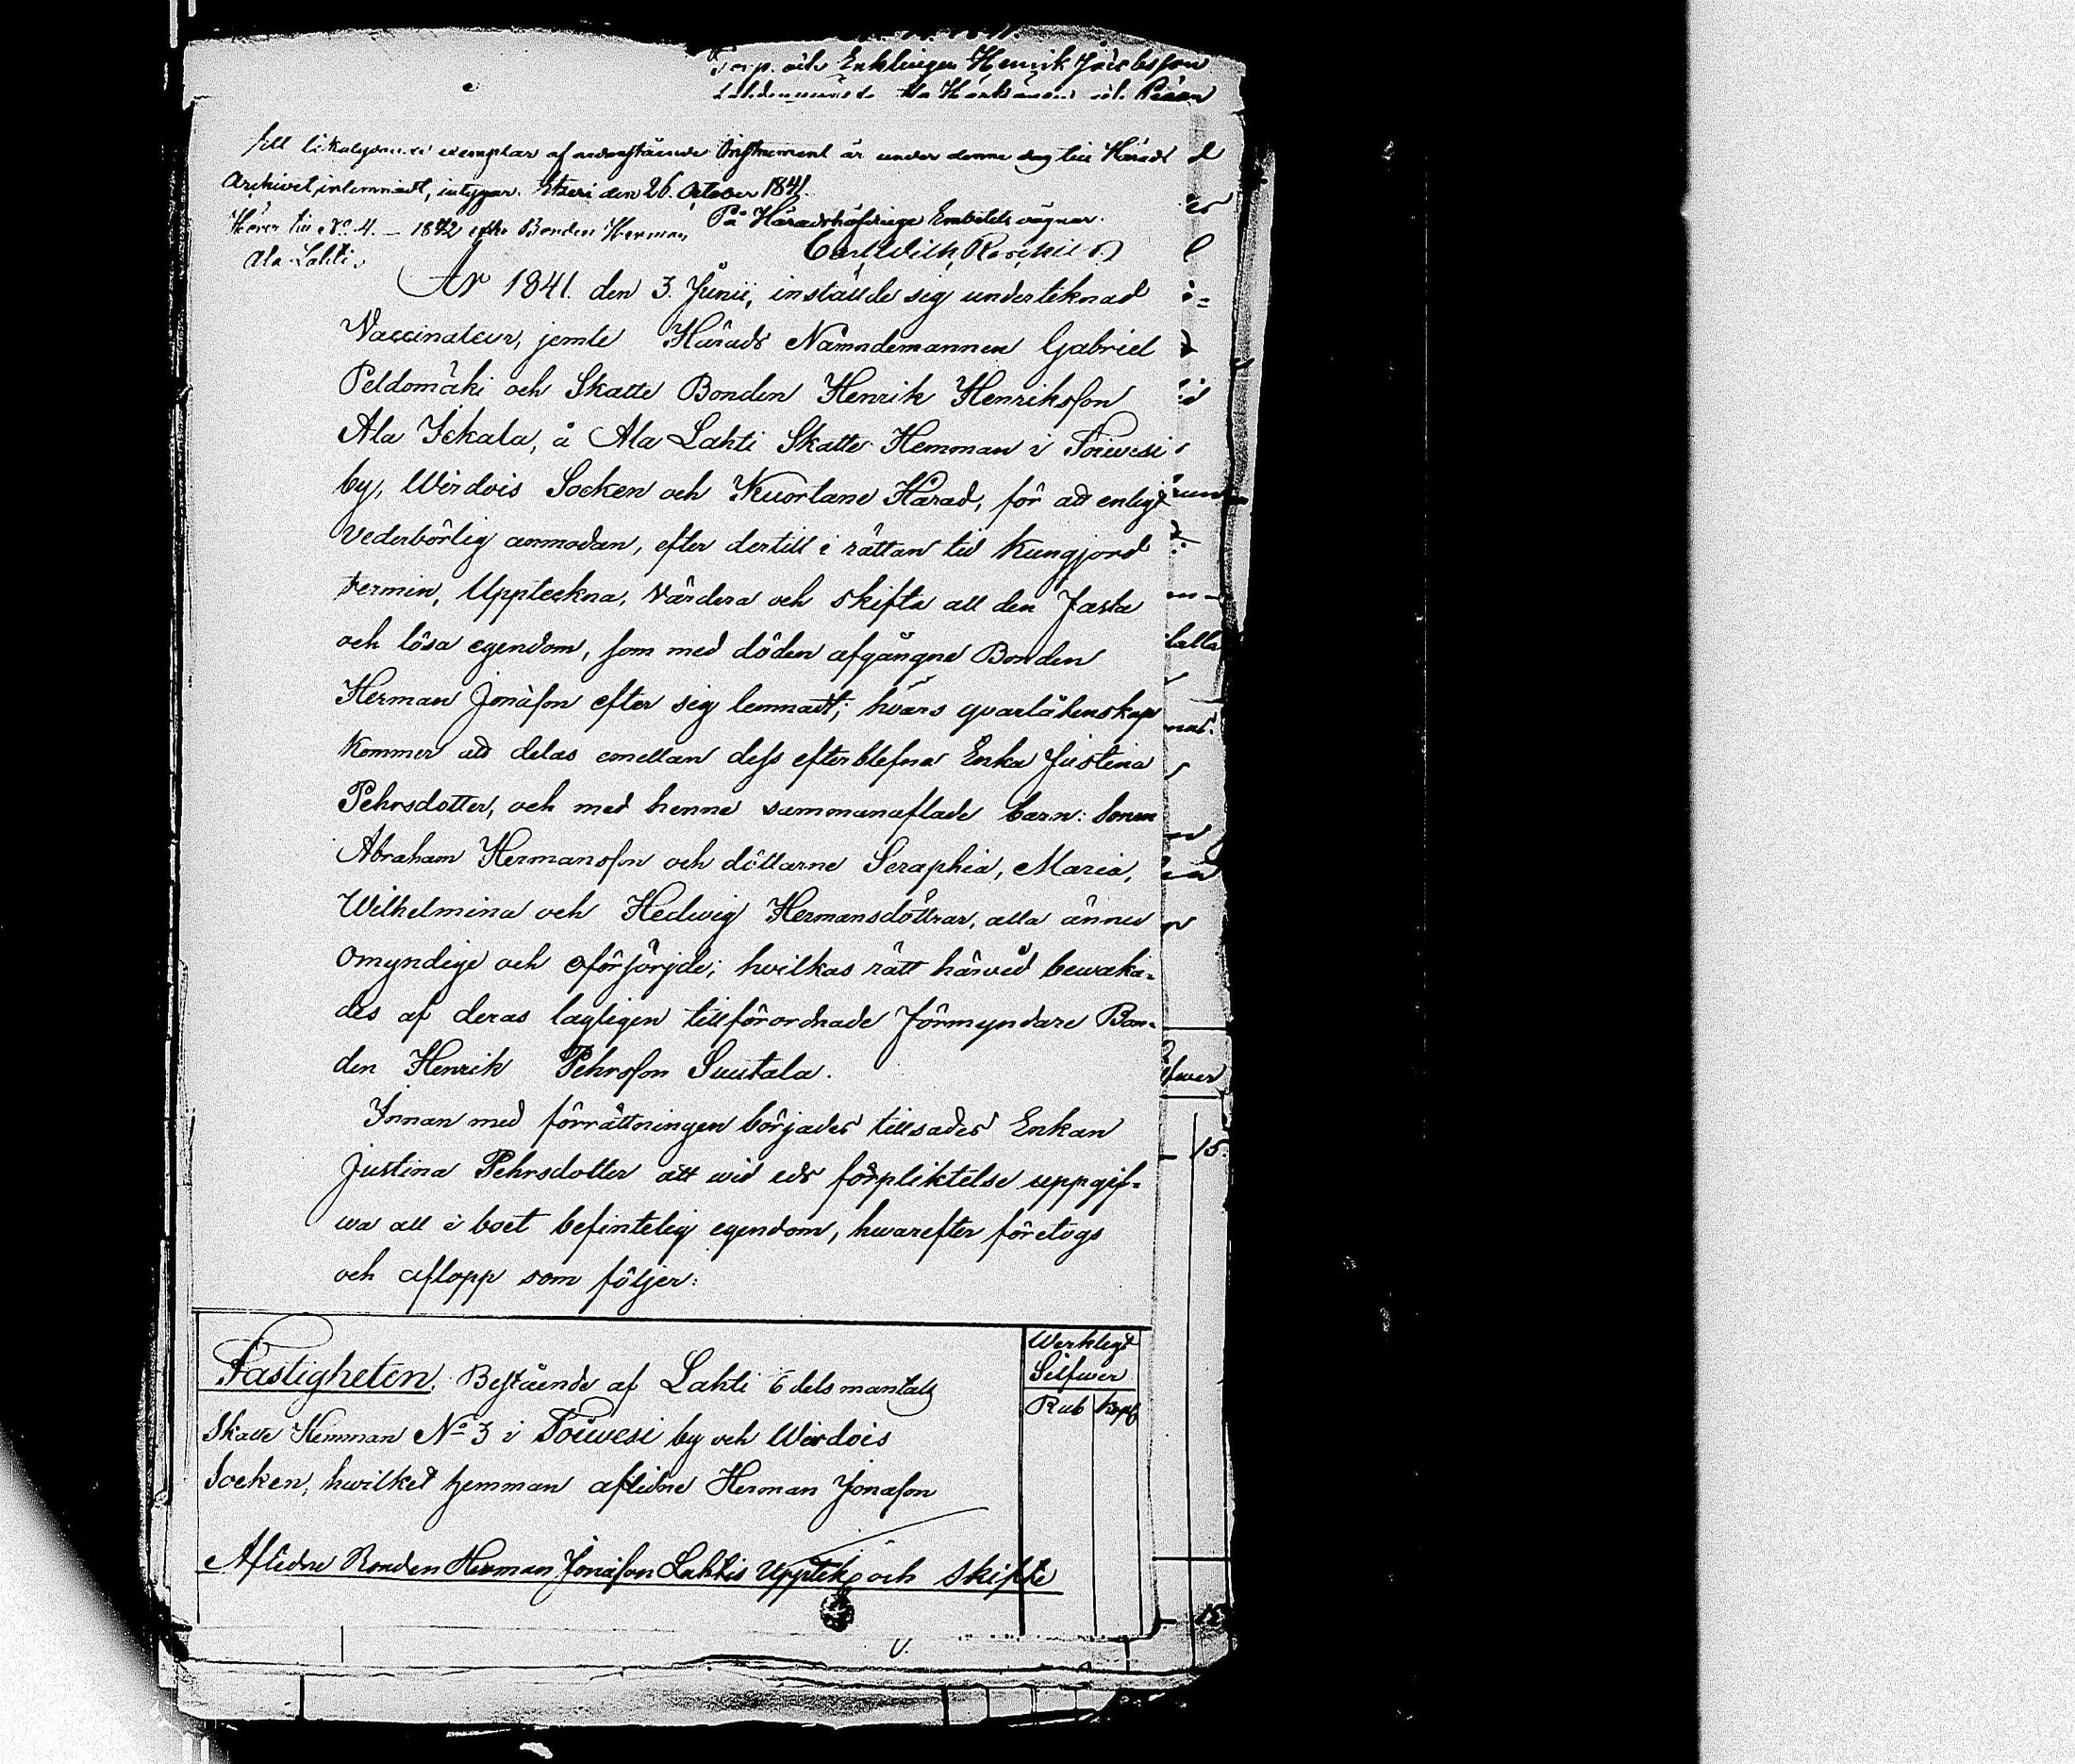 och Enklingen Henrik Jacobsson
Ett likalydande exemplar af nedanstående Instrument är under denne dag till Härads
Archivet inlemnadt, intygar. Etseri den 26. October 1841.
På Häradshöfdinge Embetets vägnar.
Hörer till No 4. – 1842 efter Bonden Herman
Ala Lahti.
Carl Wilh.
År 1841. den 3. Junii, inställde sig underteknad
Vaccinateur, jemte Härads Nämndemannen Gabriel
Peldomäki och Skatte Bonden Henrik Henriksson
Ala Jckala, å Ala Lahti Skatte Hemman i Toiwesi
by, Wirdois Socken och Kuortane Härad, för att enligt
Vederbörlig anmodan, efter dertill i rättan tid Kungjord
termin, Uppteckna, Värdera och skifta all den fasta
och lösa egendom, som med döden afgångne Bonden
Herman Jonasson efter sig lemnadt; hvars qvarlåtenskap
kommer att delas emellan dess efterblefna Enka Justina
Pehrsdotter, och med henne sammanaflade barn: Sonen
Abraham Hermansson och döttarne Seraphia, Maria,
Wilhelmina och Hedwig Hermansdöttrar, alla ännu
omyndige och oförsörjde; hvilkas rätt härvid bewaka=
des af deras lagligen tillförordnade Förmyndare Bon=
den Henrik Pehrsson Suutala.
Innan med förrättningen börjades tillsades Enkan
Justina Pehrsdotter att wid eds förpliktelse uppgif=
wa all i boet befintelig egendom, hwarefter företogs
och aflopp som följer:
Werkligt
Silfwer
Rub Kop
Fastigheten. Bestående af Lahti 6 dels mantals
Skatte Hemman No 3 i Toiwesi by och Wirdois
Socken, hwilket hemman aflidne Herman Jonasson
Aflidne Bonden Herman Jonasson Lahtis Upptek. och Skifte